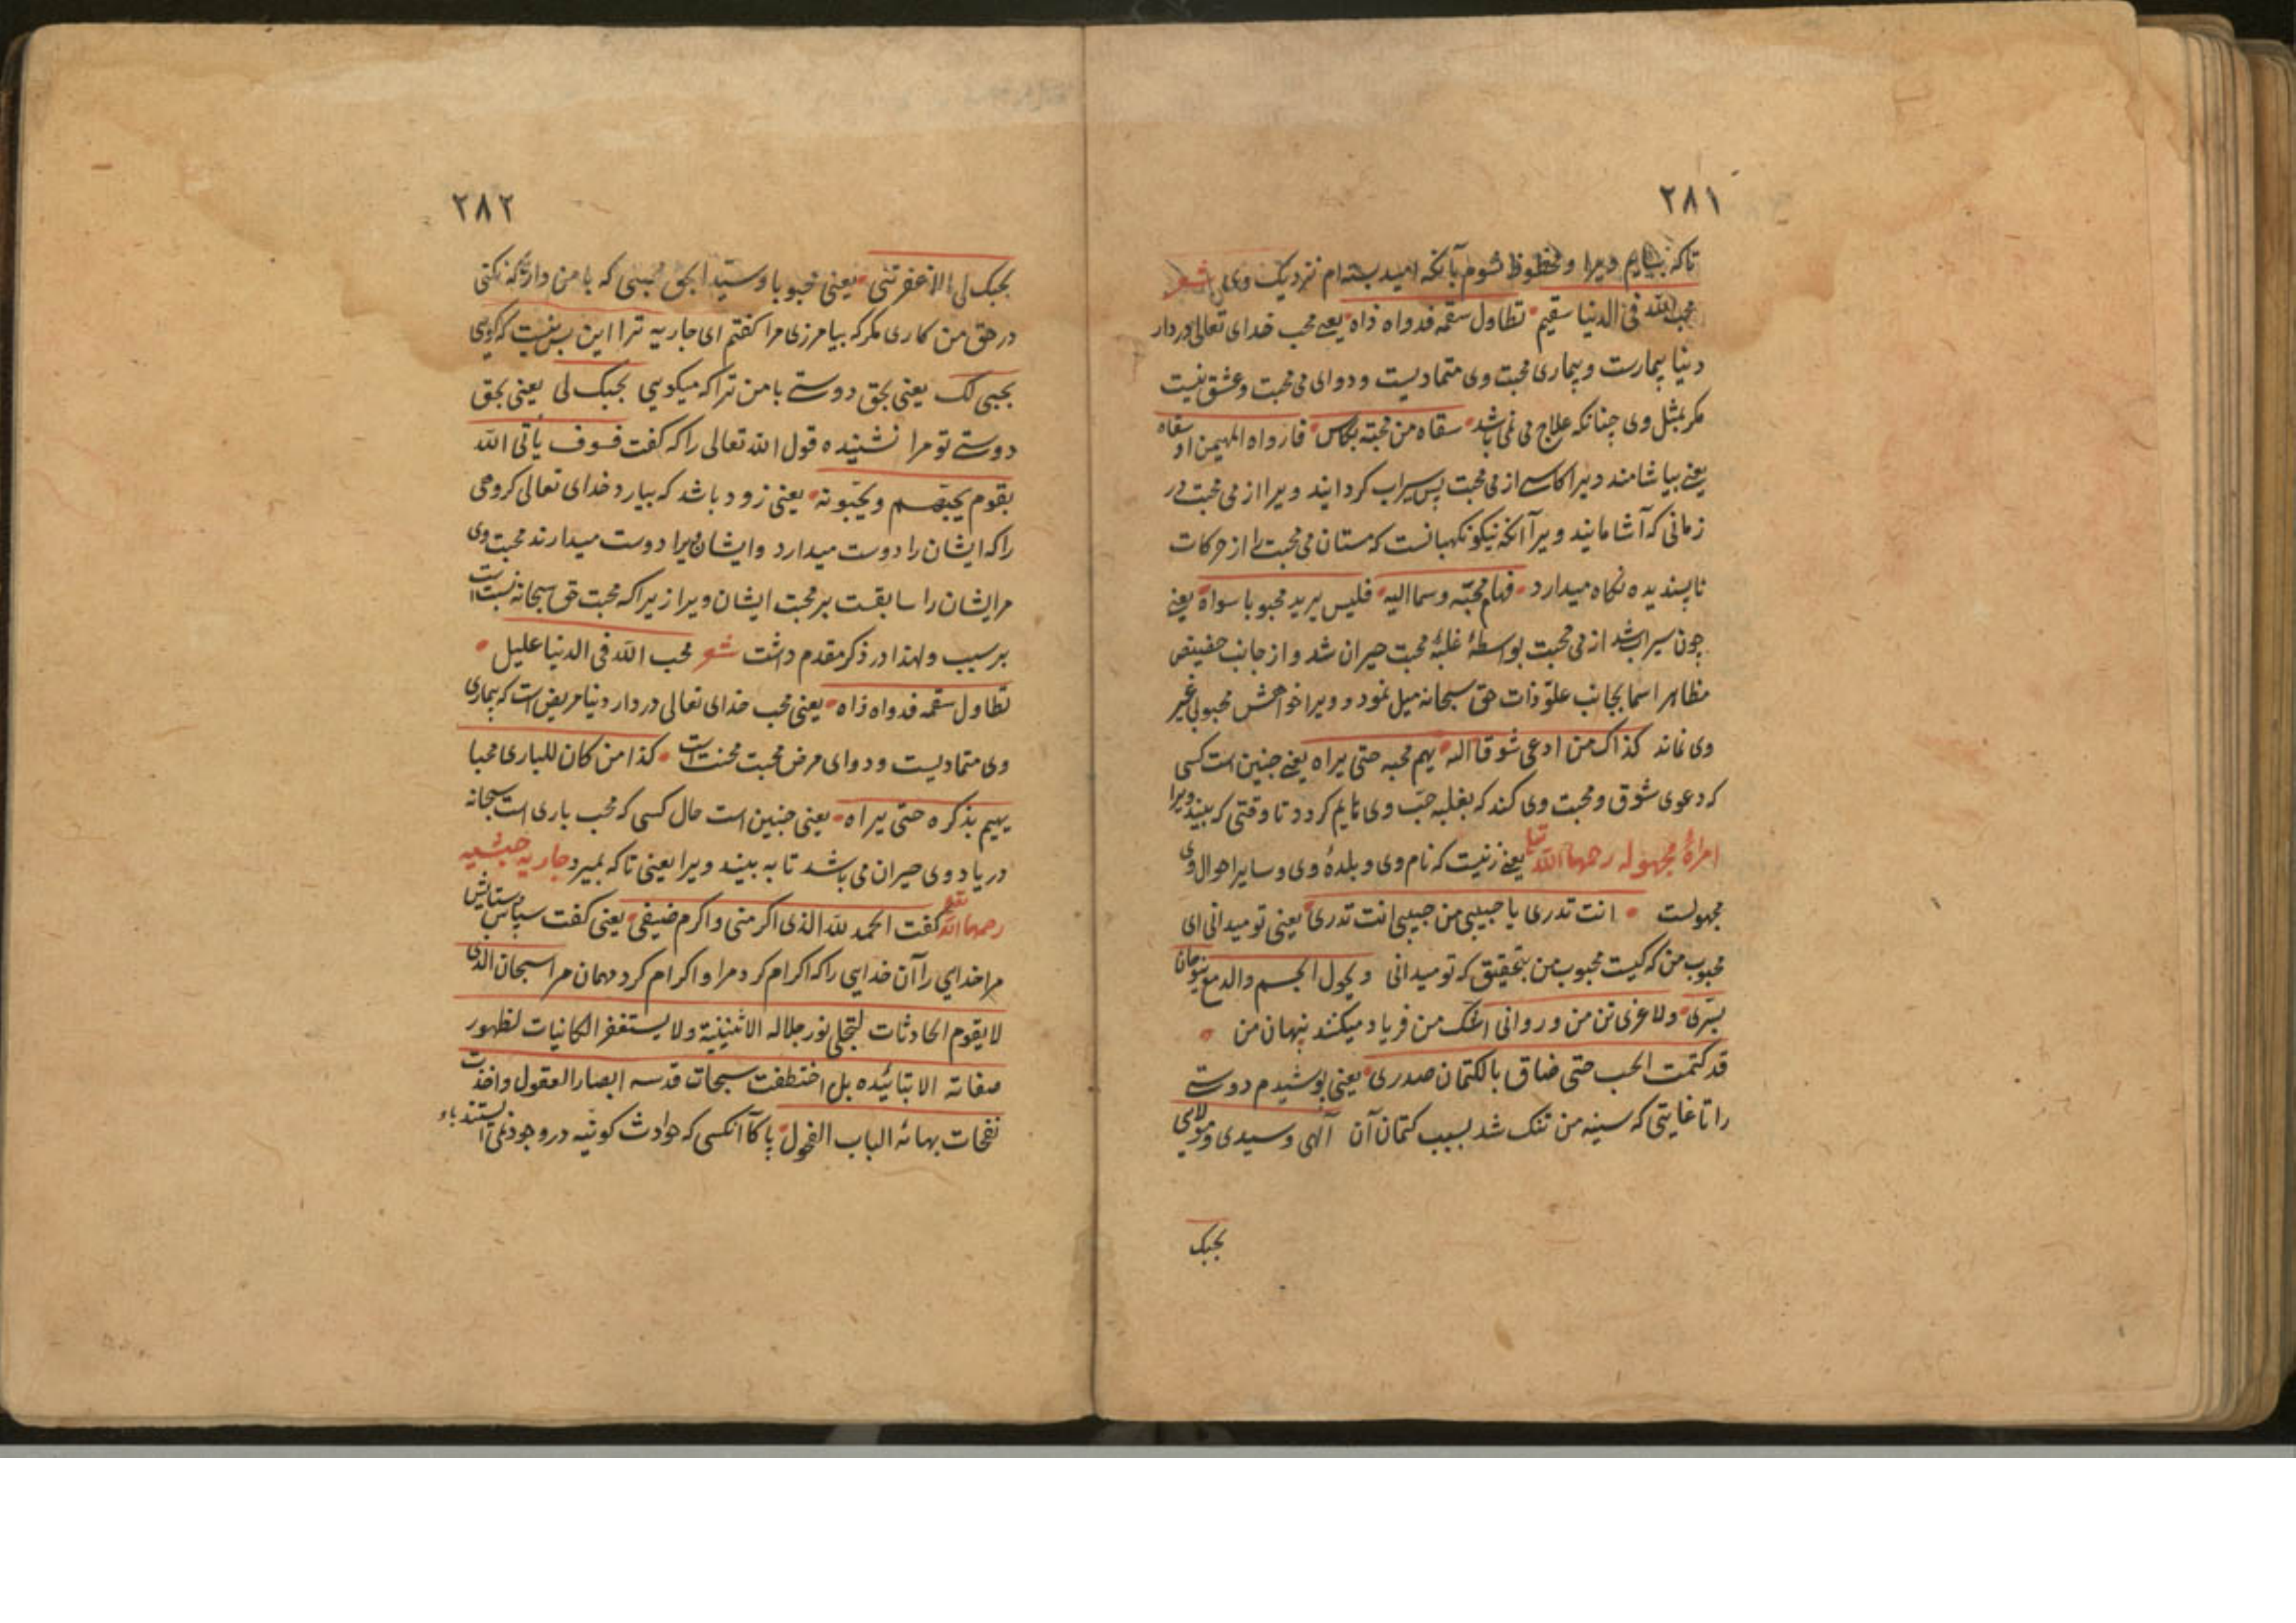 ۲۸۱
تاکه بیابم ویرا و محظوظ شوم بآنکه امید بسته‌ام نزدیک وی شعر
محب الله فی الدنیا سقیم تطاول سقمه فدواه ذاه یعنی محب خدای تعالی در دار
دنیا بیمارست و بیماری محبت وی متمادیست و دوای می محبت و عشق نیست
مکر بمثل وی چنانکه علاج می می باشد سقاه من محبته بکاس فارواه المهیمن اذ سقاه
یعنی بیاشامند ویرا کاسی از می محبت پس سیراب کردانید ویرا از می محبت در
زمانی که آشامانید ویرا آنکه نیکو نکهبانست که مستان می محبت را از حرکات
ناپسندیده نکاه میدارد فهام محبته وسما الیه فلیس یرید محبوبا سواه یعنی
چون سیراب شد از می محبت بواسطهٔ غلبهٔ محبت حیران شد و از جانب حضیض
مظاهر اسما بجانب علوّ ذات حق سبحانه میل نمود و ویرا خواهش محبوبی غیر
وی نماند کذاک من ادعی شوقا اله یهیم محبه حتی یراه یعنی چنین است کسی
که دعوی شوق و محبت وی کند که بغلبه حبّ وی هایم کردد تا وقتی که ببیند ویرا
امراة مجهوله رحمها الله تعالی یعنی زنیست که نام وی و بلدهٔ وی و سایر احوال وی
مجهولست انت تدری یا حبیبی من حبیبی انت تدری یعنی تو میدانی ای
محبوب من که کیست محبوب من بتحقیق که تو میدانی و نحول الجسم والدمع یبوحان
بسرّی و لاغری تن من و روانی اشک من فریاد میکنند پنهان من
قد کتمت الحب حتی ضاق بالکتمان صدری یعنی پوشیدم دوستی
را تا غایتی که سینه من تنک شد بسبب کتمان آن آلهی و سیدی و مولای
بحبک
۲۸۲
بحبک لی الا غفرتنی یعنی محبوبا و سیدا بحق محبتی که با من داری که نکنی
در حق من کاری مکر که بیامرزی مرا کفتم ای جاریه ترا این بس نیست که کویی
بحبی لک یعنی بحق دوستی با من ترا که میکویی بحبک لی یعنی بحق
دوستی تو مرا نشنیده قول الله تعالی را که کفت فسوف یأتی الله
بقوم یحبّهم ویحبّونه یعنی زود باشد که بیارد خدای تعالی کروهی
را که ایشان را دوست میدارد و ایشان ویرا دوست میدارند محبت وی
مر ایشان را سابقست بر محبت ایشان ویرا زیرا که محبت حق سبحانه نسبت است
بر سبب ولهذا در ذکر مقدم داشت شعر محب الله فی الدنیا علیل
تطاول سقمه فدواه ذاه یعنی محب خدای تعالی در دار دنیا مریض است که بیماری
وی متمادیست و دوای مرض محبت محنت است کذا من کان للباری محبا
یهیم بذکره حتی یراه یعنی چنین است حال کسی که محب باری است سبحانه
در یاد وی حیران می باشد تا به بیند ویرا یعنی تا که بمیرد جاریه حبشیه
رحمها الله تعالی کفت الحمد لله الذی اکرمنی واکرم ضیفی یعنی کفت سپاس و ستایش
مر خدایی را آن خدایی را که اکرام کرد مرا و اکرام کرد مهمان مرا سبحان الذی
لا یقوم الحادثات لتجلی نور جلاله الاثنینیة ولا یستغفر الکانیات لظهور
صفاته الابتائیده بل اختطفت سبحات قدسه ابصار العقول واخذت
نفحات بهائه الباب الفحول پاکا آنکسی که حوادث کونیه در وجود نمی ایستند باو